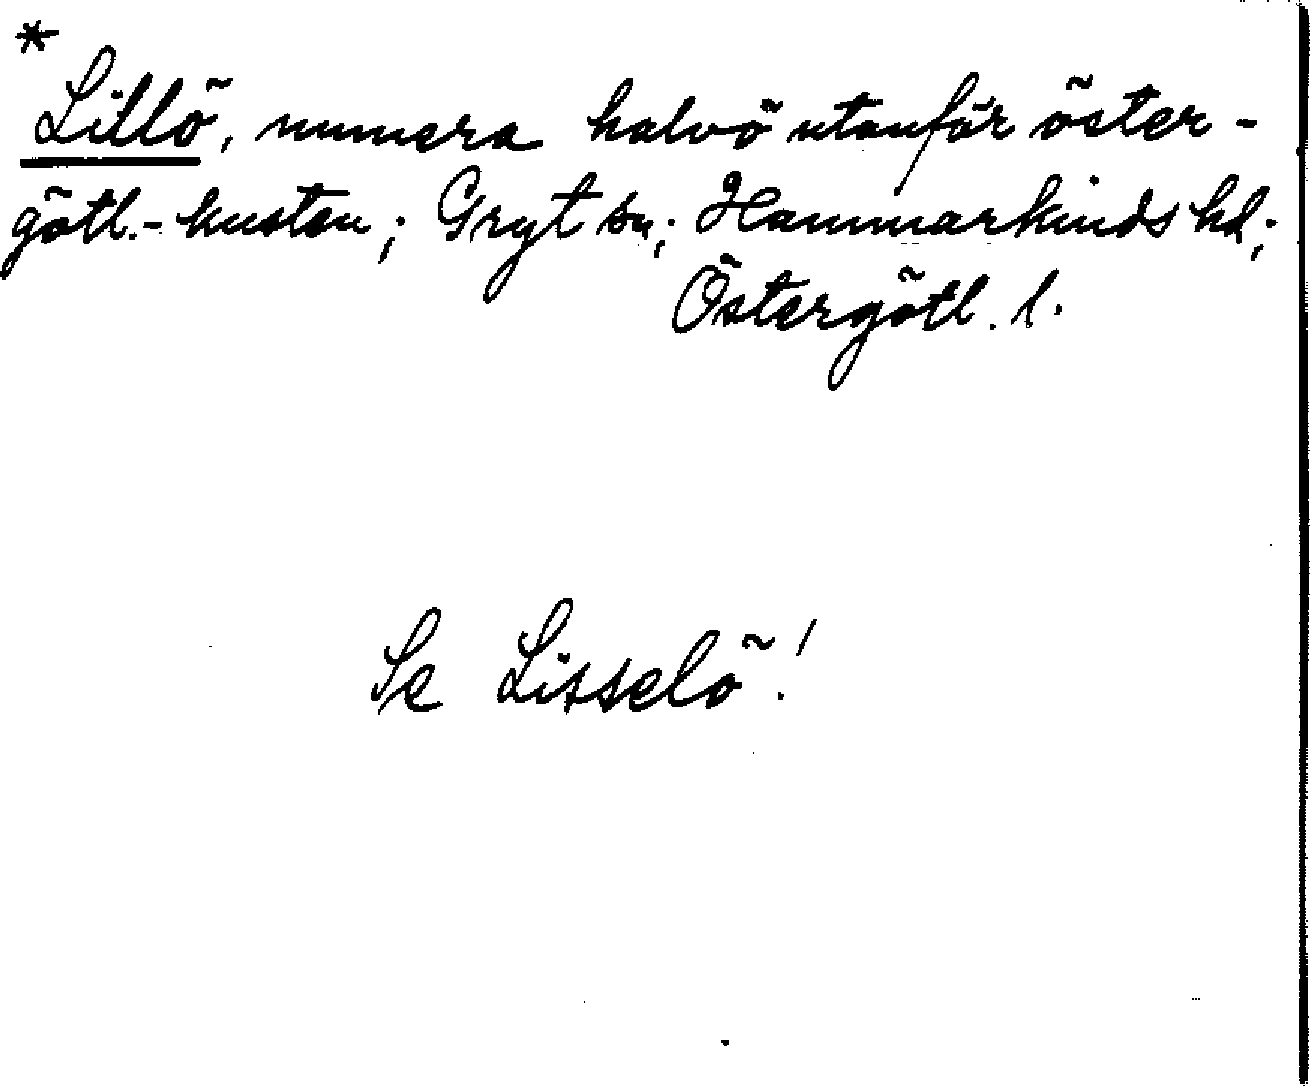 *
Lillö, numera halvö utanför öster-
götl.-kusten; Gryt sn; Hammarkinds hd;
Östergötl. l.
Se Lisselö!